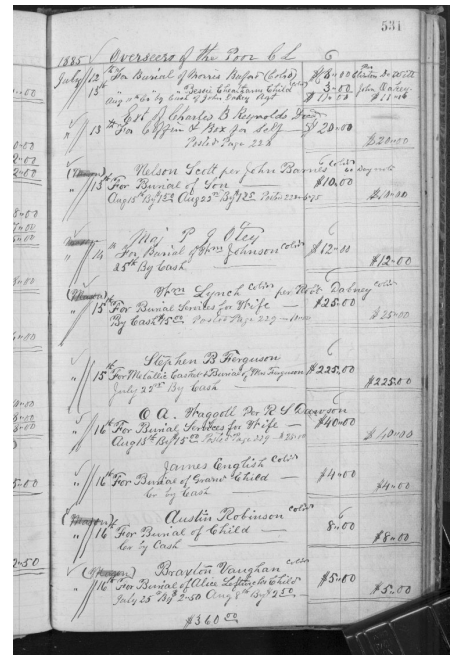 531
1885 Overseers of the Poor C L 6
July 12th For Burial of Morris Buford (Col'd) $8-00
13th " " " Bessie Cheatham Child col'd 3-00 John Oakey
Aug 10th Cr by Cash of John Oakey Agt $11-00 $11-00
Est of Charles B Reynolds
13th For Coffin & Box for Self $20-00
Posted Page 228 $20-00
Nelson Scott per John Barnes col'd
13th For Burial of Son $10.00
Aug 15th By $1.50 Aug 25th By $1.25 $10-00
Maj P J Otey 6
14th For Burial of Wm Johnson col'd $12-00
25th By Cash $12-00
Wm Lynch col'd per Robt Dabney col'd
15th For Burial Services for Wife $25.00
By Cash $15.00 Posted Page 229 $25.00
Stephen B Ferguson 6
15th For Metallic Casket & Burial of Mrs Ferguson $225.00
July 22nd By Cash $225.00
C A. per R S Dawson
16th For Burial Services for Wife $40-00
Aug 15th By $15.00 Posted Page 229 $25-00 $40-00
James English col'd
16th For Burial of Grand Child $4-00
Cr by Cash $4-00
Austin Robinson col'd 6
16th For Burial of Child 8-00
Cr by Cash $8-00
Braxton Vaughan col'd 6
16th For Burial of Alice Child $5-00
July 25th By $2-50 Aug 8th By $2.50 $5-00
$360.00